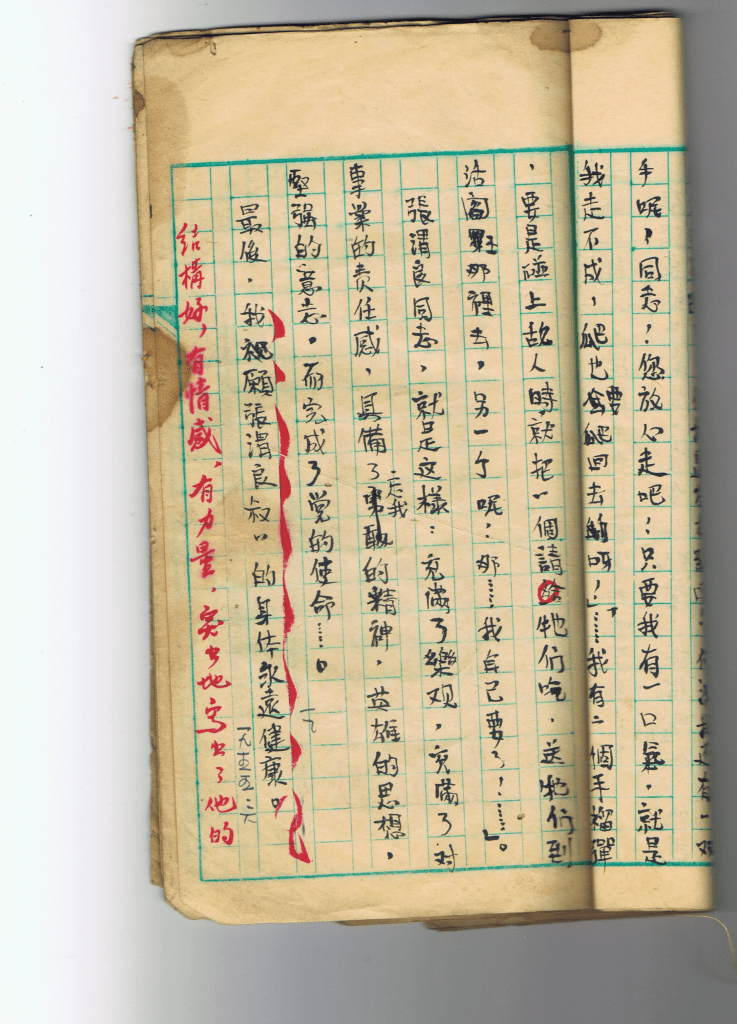 手呢？同志！您放心走吧！只要我有一口氣，就是
我走不成，爬也要爬回去的呀！」……我有二個手榴彈
，要是碰上敌人時，就把一個請牠们吃，送牠们到
活閻羅那裡去，另一个呢？那……我自己要了！……」。
張渭良同志，就是这樣：充滿了樂观，充滿了对
事業的责任感，具備了忘我的精神，英雄的思想，
堅强的意志。而完成了党的使命……。
最後，我祝願張渭良叔口的身体永遠健康。
一九五五.二.六
結構好，有情感、有力量，突出地寫出了他的